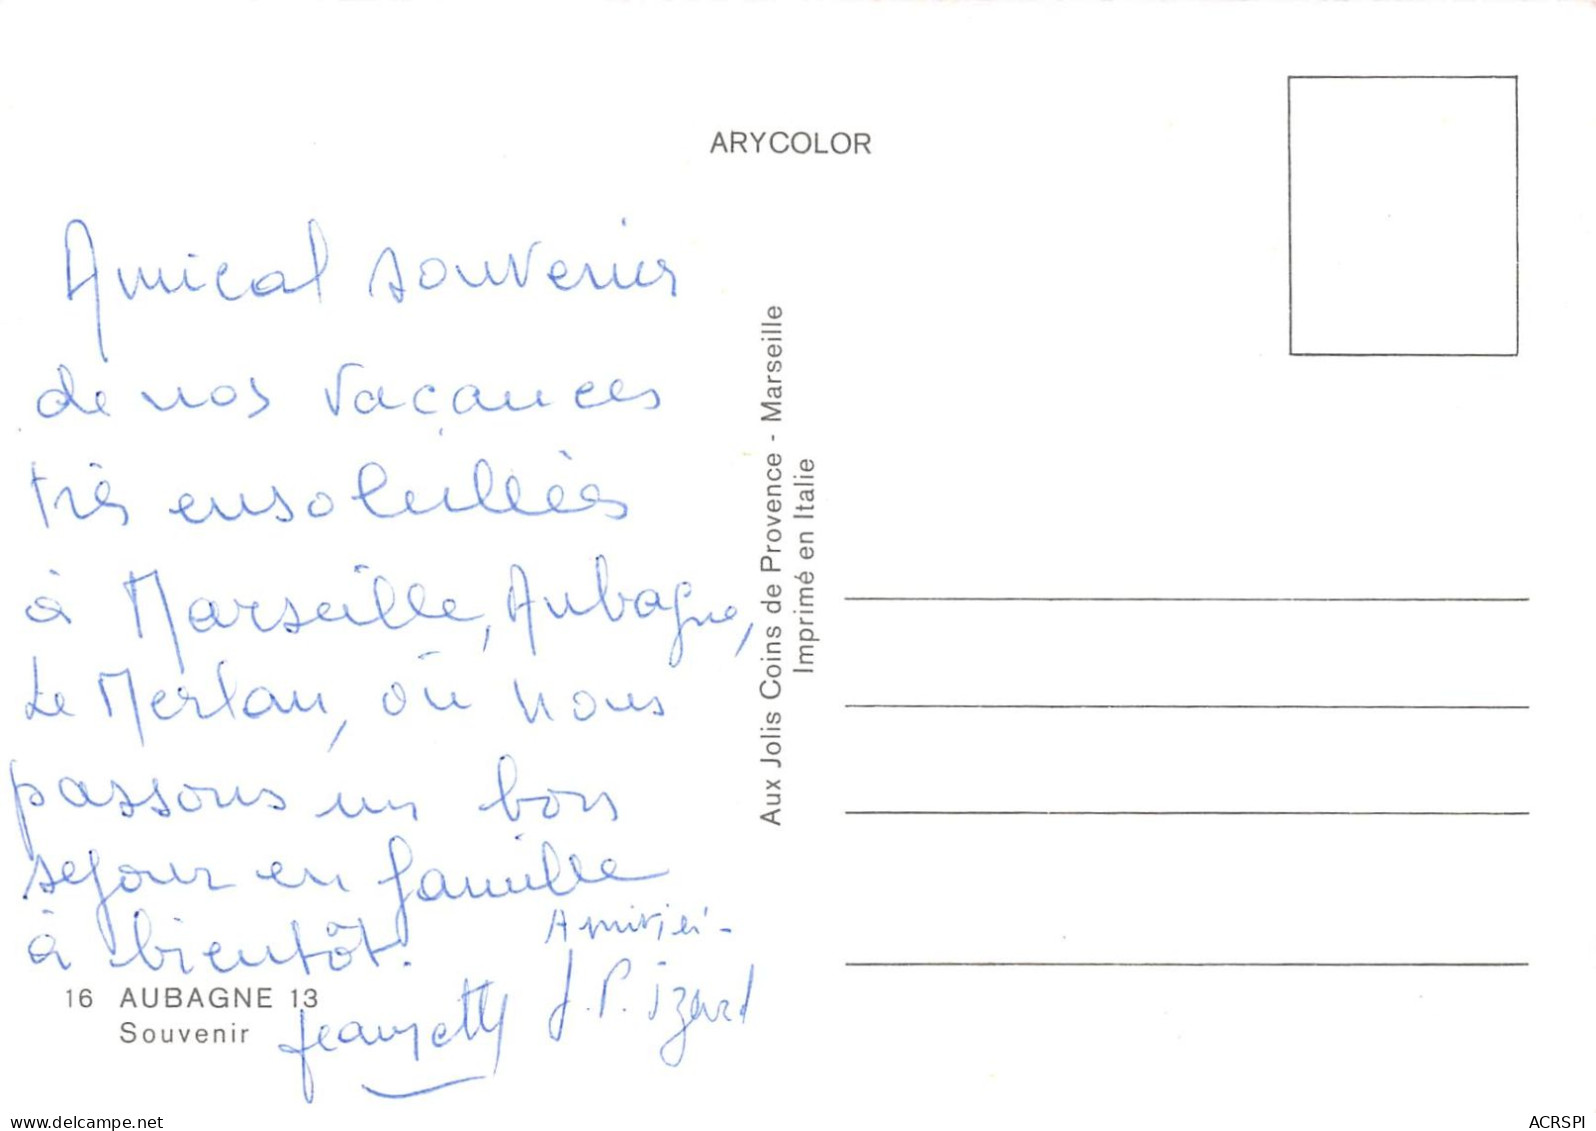 ARYCOLOR
Amical souvenir
de nos vacances
très ensoleillées
à Marseille, Aubagne,
Le Merlan, où nous
passons un bon
sejour en famille
à bientôt.
Amitiés -
Jeannette
J. P. Izard
16 AUBAGNE 13
Souvenir
Aux Jolis Coins de Provence - Marseille
Imprimé en Italie
www.delcampe.net
ACRSPI